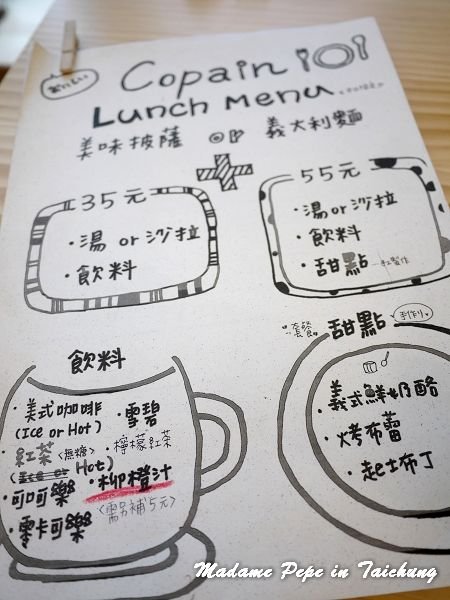 おいしい
Copain
Lunch Menu
美味披薩 or 義大利麵
35元
・湯 or 沙拉
・飲料
55元
・湯 or 沙拉
・飲料
・甜點
飲料
・美式咖啡
(Ice or Hot)
・紅茶〈無糖〉
Hot)
・可口可樂
・零卡可樂
・雪碧
・檸檬紅茶
・柳橙汁
〈需另補5元〉
套餐 甜點 手作り
・義式鮮奶酪
・烤布蕾
・起士布丁
Madame Pepe in Taichung